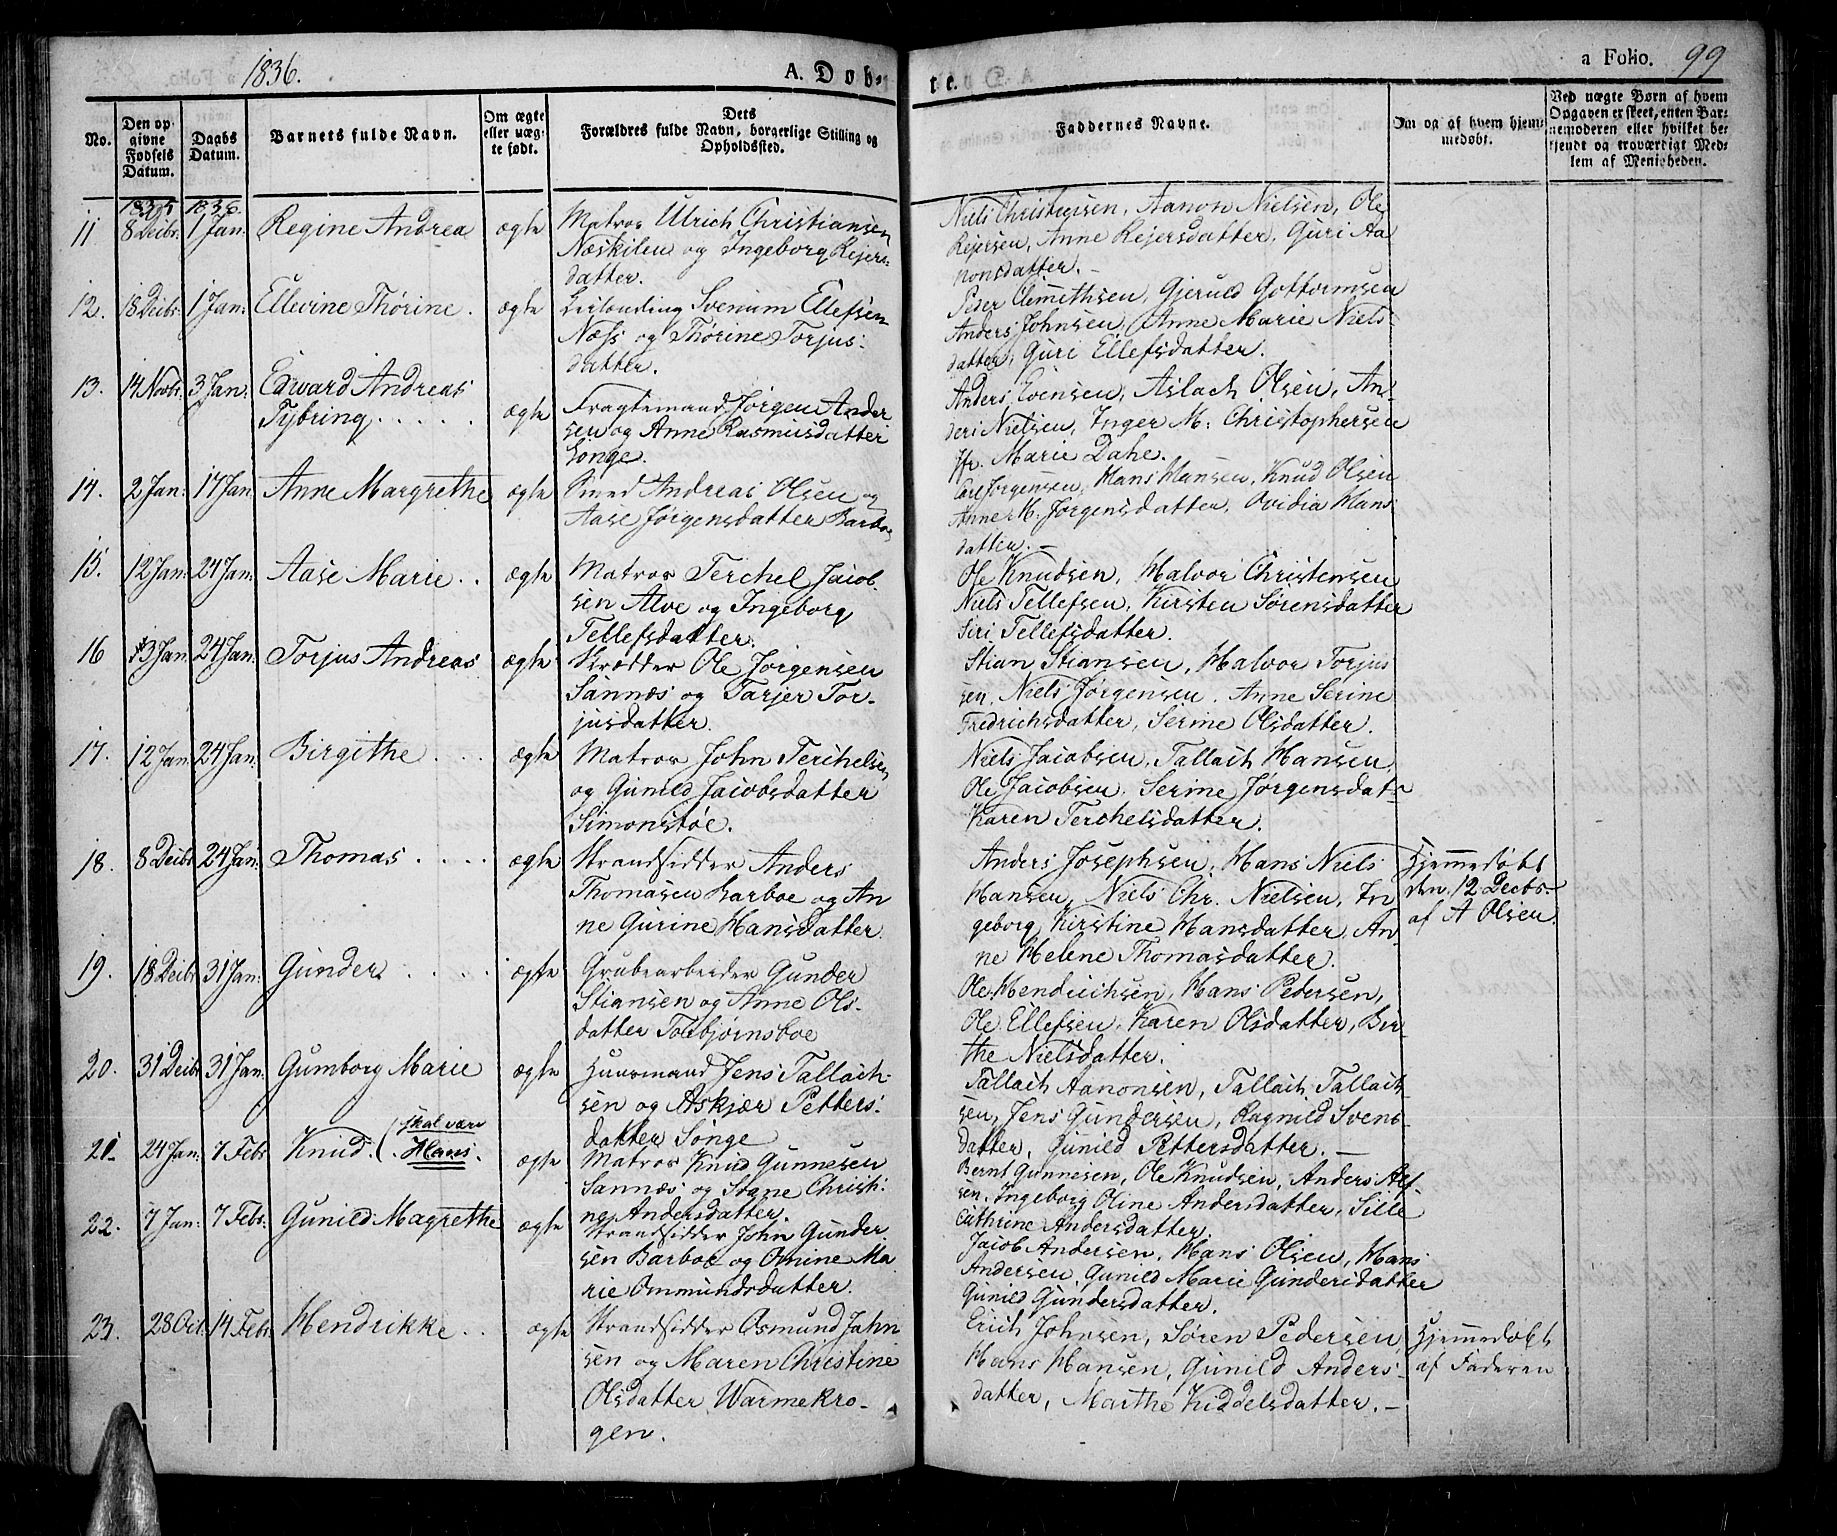 1836.
A. Døb-
te.
a Folio. 99
No.
Den op
givne
Fødsels
Datum.
Daabs
Datum.
Barnets fulde Navn.
Om ægte
eller uæg-
te født.
Dets
Forældres fulde Navn, borgerlige Stilling og
Opholdssted.
Faddernes Navne.
Om og af hvem hjem-
medøbt.
Ved uægte Børn af hvem
Opgaven er skeet, enten Bar-
nemoderen eller hvilket be-
kjendt og troværdigt Med-
lem af Menigheden.
1835 1836.
11 8 Decbr. 1 Jan: Regine Andrea ægte Matros Ulrich Christiansen
Næskilen og Ingeborg Rejers-
datter.
Niels Christensen, Aanon Nielsen, Ole
Rejersen, Anne Rejersdatter, Guri Aa
nonsdatter. -
12. 18 Decbr. 1 Jan: Ellevine Thorine. ægte Svenum Ellefsen
Næss og Thorine Torjus-
datter.
Peder Clemethsen, Gjeruld Gottormsen
Anders Johnsen, Anne Marie Niels-
datter, Guri Ellefsdatter.
13. 14 Novbr. 3 Jan: Edward Andreas
Tybring . . . . . ægte Fragtemand Jørgen Ander
sen og Anne Rasmusdatter
Songe.
Anders Evensen, Aslach Olsen, An-
ders Nielsen, Inger M: Christophersen
Jfr. Marie Dahe.
14. 2 Jan: 17 Jan: Anne Margrethe ægte Smed Andreas Olsen og
Aase Jørgensdatter Barboe
Carl Jørgensen, Hans Hansen, Knud Olsen
Anne M. Jørgensdatter, Ovidia Hans
datter. -
15. 12 Jan: 24 Jan: Aase Marie . . ægte Matros Terchel Jacob
sen Alve og Ingeborg
Tellefsdatter.
Ole Knudsen, Halvor Christensen
Niels Tellefsen, Kirsten Sørensdatter
Siri Tellefsdatter.
16 13 Jan: 24 Jan: Torjus Andreas ægte Skrædder Ole Jørgensen
Sannæs og Tarjer Tor-
jusdatter.
Stian Stiansen, Halvor Torjus
sen, Niels Jørgensen, Anne Serine
Fredrichsdatter, Serine Olsdatter.
17. 12 Jan: 24 Jan: Birgithe . . . . ægte Matros John Terchelsen
og Gunild Jacobsdatter
Simonstøe.
Niels Jacobsen, Tallach Hansen
Ole Jacobsen, Serine Jørgensdat-
Karen Terchelsdatter.
18. 8 Decbr 24 Jan: Thomas . . . . ægte Strandsidder Anders
Thomasen Barboe og An
ne Gurine Hansdatter
Anders Josephsen, Hans Niels
Hansen, Niels Chr. Nielsen, In
geborg Kirstine Hansdatter, An
ne Helene Thomasdatter.
Hjemmedøbt
den 12 Decbr.
af A Olsen.
19. 18 Decbr 31 Jan: Gunder . . . . ægte Grubearbeider Gunder
Stiansen og Anne Ols-
datter Torbjørnsboe
Ole Hendrichsen, Hans Pedersen,
Ole Ellefsen, Karen Olsdatter, Bir-
the Nielsdatter.
20. 31 Decbr 31 Jan: Gumborg Marie ægte Huusmand Jens Tallach-
sen og Askjær Petters-
datter Songe
Tallach Aanonsen, Tallach Tallach-
sen, Jens Gundersen, Ragnild Svens-
datter, Gunild Pettersdatter. -
21. 24 Jan: 7 Febr. Knud. (skal være
Hans. ægte Matros Knud Gunnesen
Sannæs og Stane Christi-
ne Andersdatter.
Bernt Gunnesen, Ole Knudsen, Anders Alf-
sen, Ingeborg Oline Andersdatter, Sille
Cathrine Andersdatter.
22. 7 Jan: 7 Febr. Gunild Magrethe ægte Strandsidder John Gunder
sen Barboe og Omine Ma
rie Ommundsdatter.
Jacob Andersen, Hans Olsen, Hans
Andersen, Gunild Marie Gundersdatter
Gunild Gundersdatter.
23. 28 Oct. 14 Febr. Hendrikke . . ægte Strandsidder Osmund Jahn
sen og Maren Christine
Olsdatter Warmekro-
gen.
Erich Johnsen, Søren Pedersen,
Hans Hansen, Gunild Anders-
datter, Marthe Kiddelsdatter. -
Hjemmedøbt
af Faderen